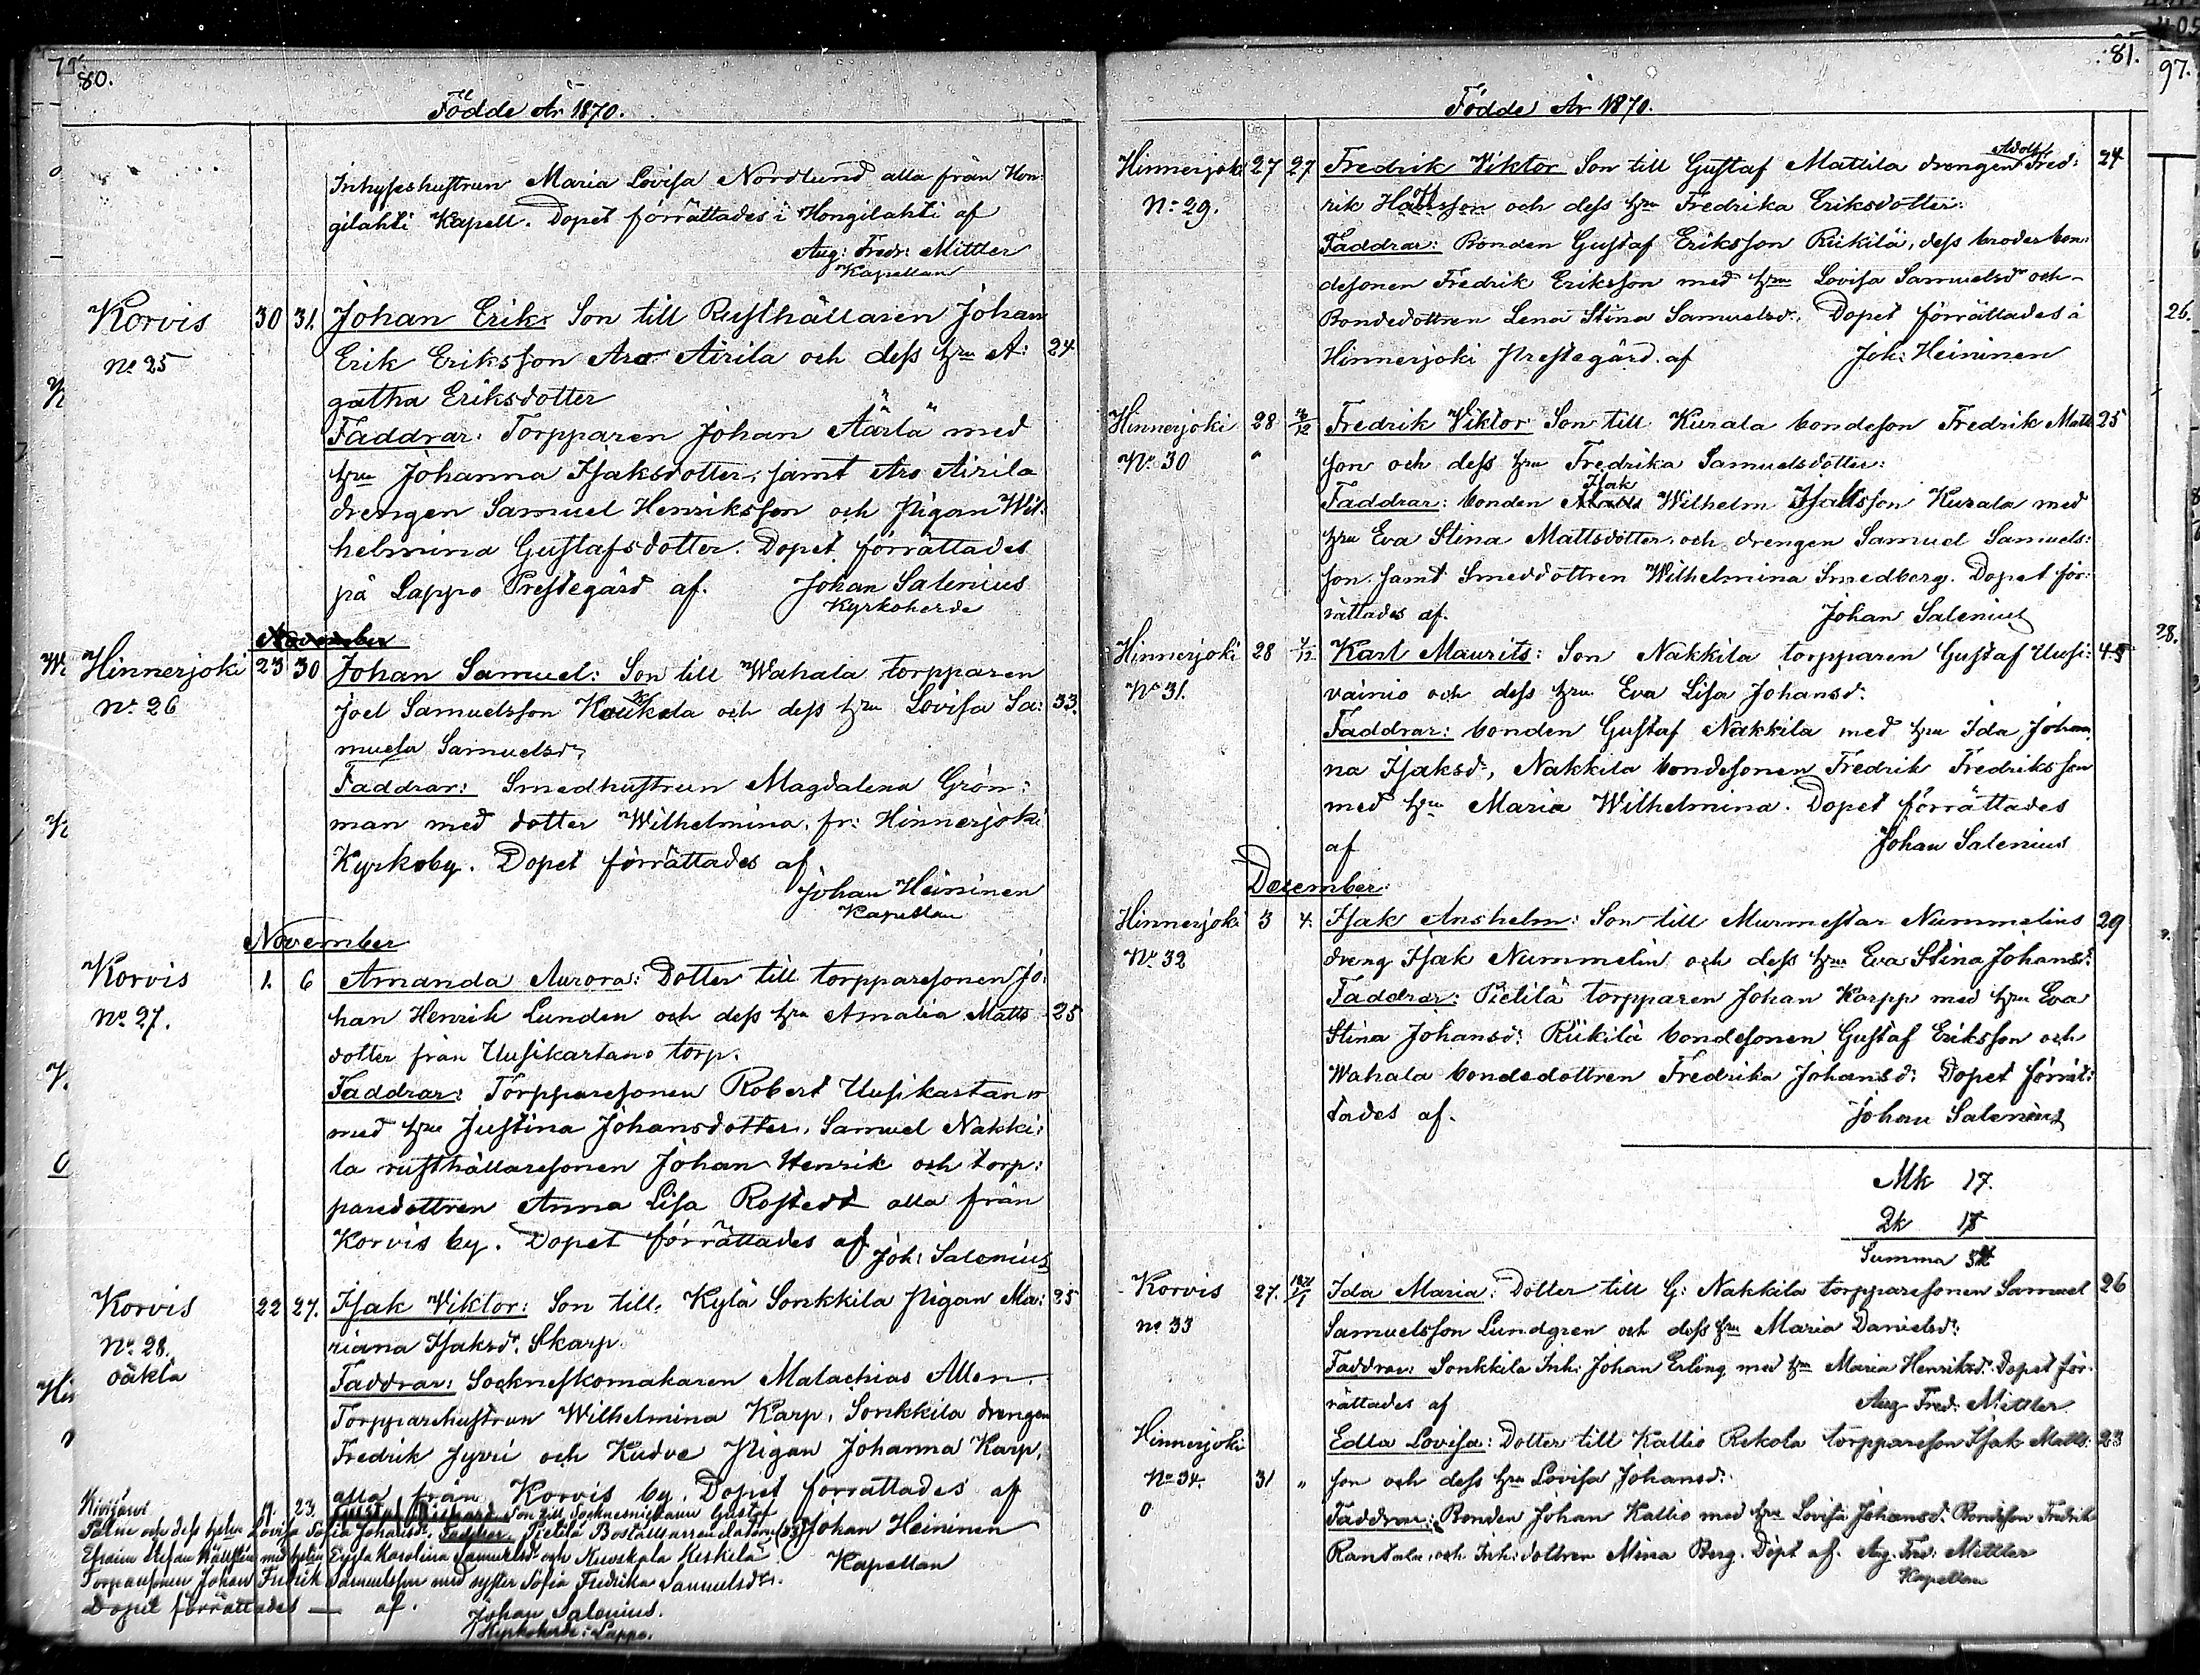 80.
Födde År 1870.
Inhyseshustrun Maria Lovisa Nordlund alla från Hon:
gilahti Kapell. Dopet förrättades i Hongilahti af
Aug: Fredr: Mittler
Kapellan
Korvis 30 31. Johan Erik. Son till Rusthållaren Johan
No 25 Erik Eriksson Aro Airila och dess hru A: 24
gatha Eriksdotter
Faddrar: Torpparen Johan Äärlä med
hru Johanna Isaksdotter, samt Aro Airila
drengen Samuel Henriksson och Pigan Wil:
helmina Gustafsdotter. Dopet förrättades
på Lappo Prestegård af. Johan Salenius
Kyrkoherde
November
Hinnerjoki 23 30 Johan Samuel: Son till Wahala torpparen
No 26 Joel Samuelsson och dess hru Lovisa Sa: 33.
muela Samuelsdr
Faddrar: Smedhustrun Magdalena Grön:
man med dotter Wilhelmina, fr: Hinnerjoki
Kyrkoby. Dopet förrättades af
Johan Heininen
Kapellan
November
Korvis 1. 6 Amanda Aurora: Dotter till torpparesonen Jo:
No 27. han Henrik Lunden och dess hru Amalia Matts 25
dotter från Uusikartano torp.
Faddrar: Torpparesonen Robert Uusikartano
med hru Justina Johansdotter, Samuel Nakki:
la rusthållaresonen Johan Henrik och torp:
paredottren Anna Lisa Rostedt alla från
Korvis by. Dopet förrättades af Joh: Salenius
Korvis 22 27. Isak Viktor: Son till Kylä Sonkkila Pigan Ma: 25
No 28. riana Isaksd. Skarp.
oäkta Faddrar: Sockneskomakaren Malachias Allen.
Torpparehustrun Wilhelmina Karp, Sonkkila drengen
Fredrik Jyvri och Kudve Pigan Johanna Karp,
alla från Korvis by. Dopet förrättades af
Johan Heininen
Kapellan
Kivijärvi 19. 23 Gustaf Richard Son till Socknesnickaren Gustaf
och dess hustru Lovisa Sofia Johansdr. Faddrar. Pietilä
Efraim Stefan Wällsten med hustru Karolina Samuelsdr och Kuvskala Keskilä
Torparesonen Johan Fredrik Samuelsson med syster Sofia Fredrika Samuelsdtr.
Dopet förrättades — af.
Johan Salenius.
Kyrkoherde i Lappo.
81.
Födde År 1870.
Hinnerjoki 27 27 Fredrik Viktor Son till Gustaf Mattila drengen Adolf Fred: 24
No 29. rik och dess hru Fredrika Eriksdotter.
Faddrar: Bonden Gustaf Eriksson Riikilä, dess broder bon:
desonen Fredrik Eriksson med hru Lovisa Samuelsdr och
Bondedottren Lena Stina Samuelsdr. Dopet förrättades å
Hinnerjoki Prestegård af Joh: Heininen
Hinnerjoki 28 4/12 Fredrik Viktor Son till Kurala bondeson Fredrik Matts 25
No 30 son och dess hru Fredrika Samuelsdotter:
Faddrar: bonden Isak Wilhelm Kurala med
hru Eva Stina Mattsdotter och drengen Samuel Samuels:
son. samt Smeddottren Wilhelmina Smedberg. Dopet för:
rättades af. Johan Salenius
Hinnerjoki 28 4/12 Karl Maurits: Son Nakkila torpparen Gustaf Uusi:
No 31. vainio och dess hru Eva Lisa Johansd:
Faddrar: bonden Gustaf Nakkila med hru Ida Johan
na Isaksd:, Nakkila bondesonen Fredrik Fredriksson
med hru Maria Wilhelmina. Dopet förrättades
af Johan Salenius
December:
Hinnerjoki 3 4. Isak Anshelm: Son till Murmestar Nummelius 29
No 32 dreng Isak Nummelin och dess hru Eva Stina Johansd:
Faddrar: Pietilä torpparen Johan Karpp med hru Eva
Stina Johansd: Riikilä bondesonen Gustaf Eriksson och
Wahala bondedottren Fredrika Johansd: Dopet förrät:
tades af. Johan Salenius
Mk 17.
Qk
Summa
Korvis 27. Ida Maria: Dotter till G: Nakkila torpparesonen Samuel 26
No 33 Samuelsson Lundgren och dess hru Maria Danielsd:
Faddrar: Sonkkila Inh: Johan Erling med hru Maria Henriksd: Dopet för
rättades af Aug Fred: Mittler
Hinnerjoki Edla Lovisa: Dotter till Kallio Rekola torppareson Isak Matts: 23
No 34. 31 " son och dess hru Lovisa Johansd:
Faddrar: Bonden Johan Kallio med hru Lovisa Johansd: Bondeson Fredrik
Rantala, och Inh: dottren Mina Berg. Döpt af. Aug. Fred: Mittler
Kapellan
97.
26.
28.